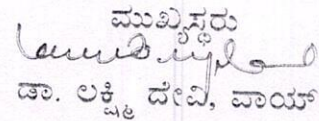 ಮುಖ್ಯಸ್ಥರು
ಡಾ. ಲಕ್ಷ್ಮಿ ದೇವಿ, ವಾಯ್